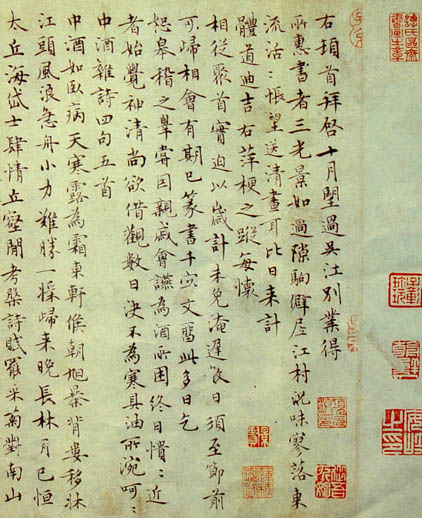 右頓首拜啓十月望過吳江別業得
所惠書者三光景如過隙駒僻居江村況味寥落東
流活〻悵望送清晝耳比日來計
體道迪吉右萍梗之蹤每懷
相從聚首實迫以歲計未免淹遲日須至節前
可歸相會有期已篆書千字文留此多日乞
恕稽之因親戚會讌為酒所困終日憒〻近
者始覺神清尚欲借觀數日決不為寒具油所涴呵〻
中酒雜詩四句五首
中酒如臥病天寒露為霜東軒候朝旭暴背婁移牀
江頭風浪急舟小力難勝一歸來晚長林月已恒
太丘海岱士肆情丘壑間考槃詩賦罷采菊對南山